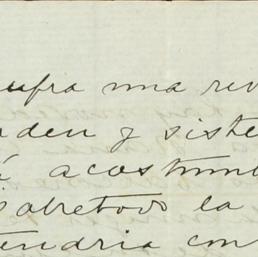 sufra una rev
orden y siste
á acostumb
sobretodo la
tendria con